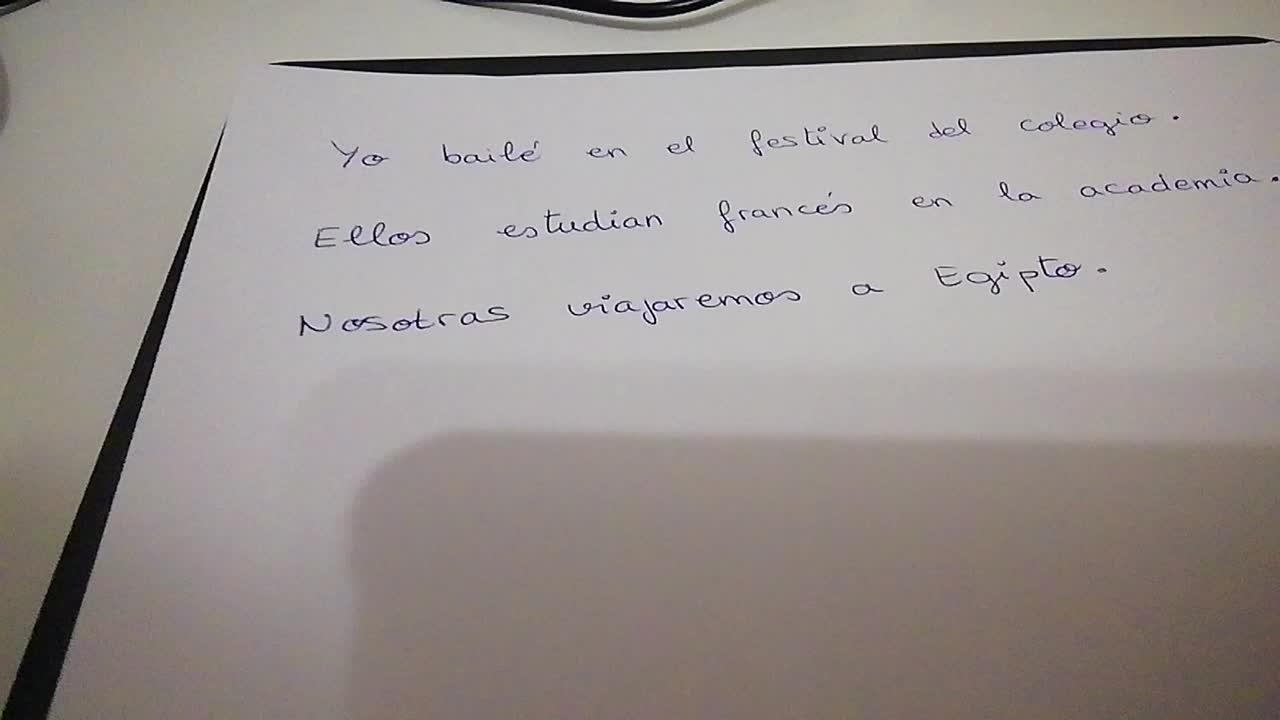 Yo bailé en el festival del colegio.
Ellos estudian francés en la academia.
Nosotras viajaremos a Egipto.